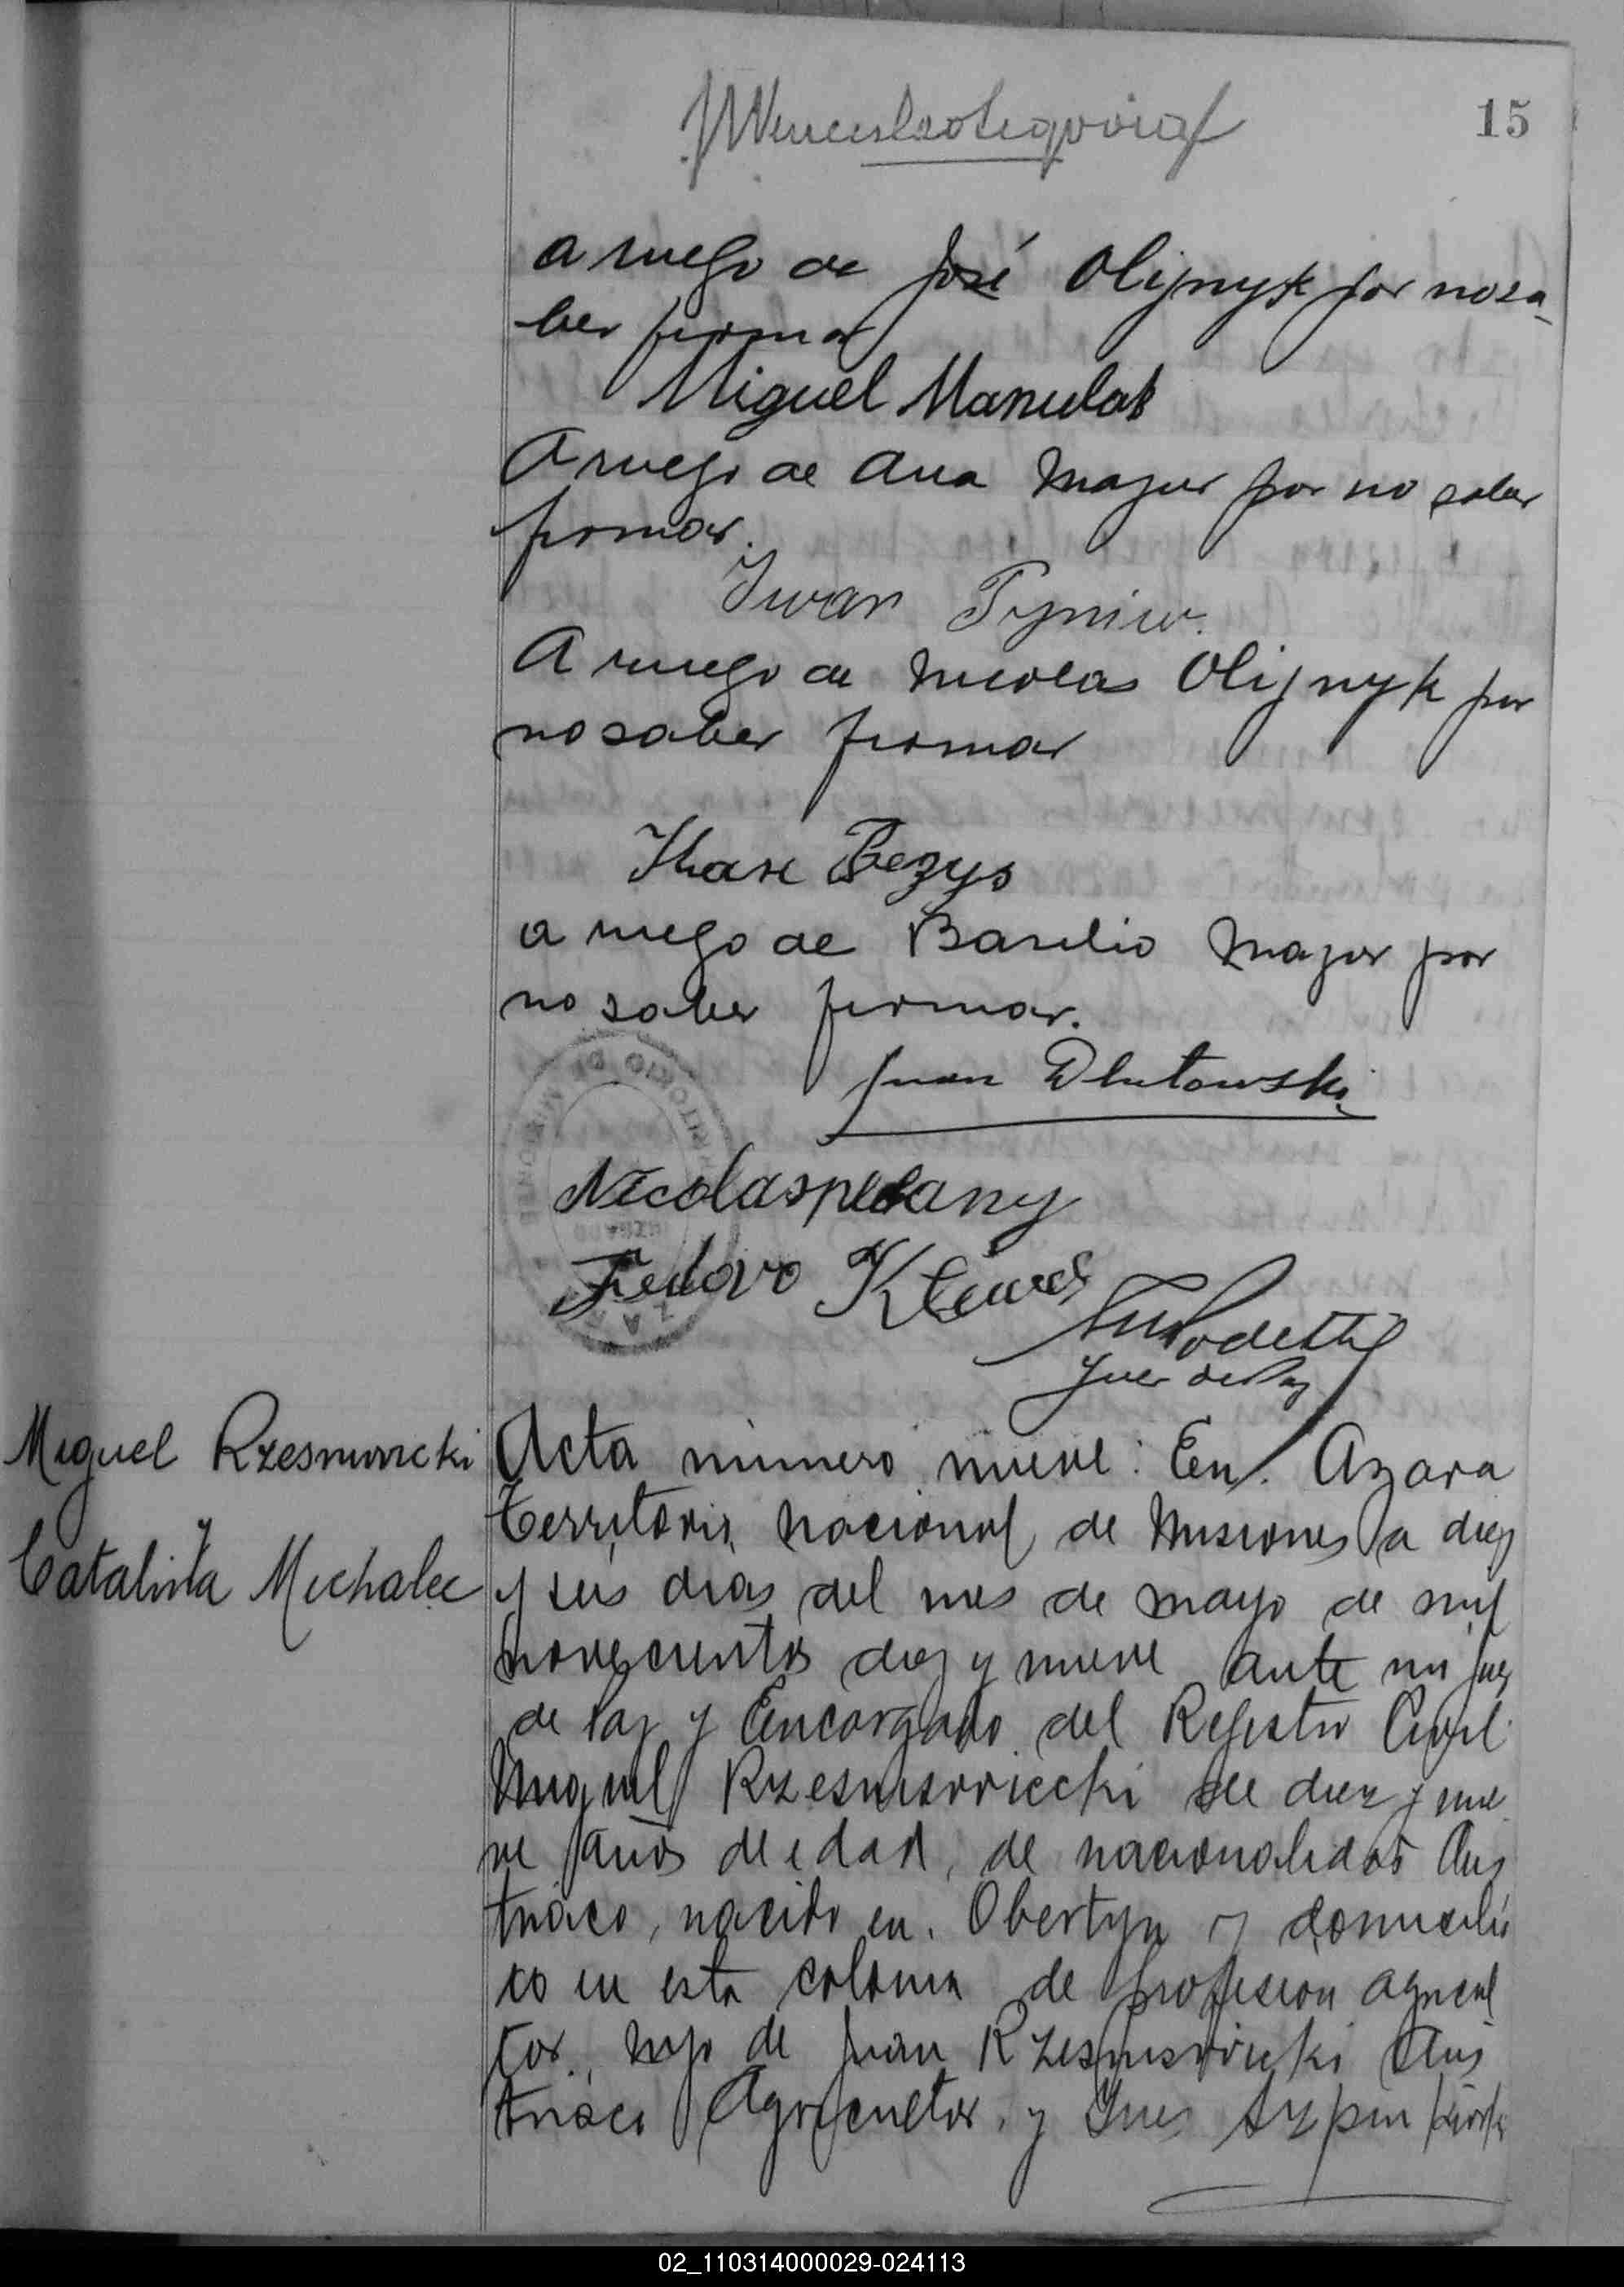 15
a ruego de José Olijnyk por no sa-
ber firmar
Miguel Manulak
A ruego de Ana Mazur por no saber
firmar.
Iwan Tyniw.
A ruego de Nicolas Olijnyk por
no saber firmar
Bezys
a ruego de Basilio Mazur por
no saber firmar.
Juan Dlutowski
Nicolas
Fedoro
Juez de Paz
Miguel Rzesniowicki
y
Catalina Michalec
Acta número nueve: En Azara
Territorio Nacional de Misiones a diez
y seis dias del mes de mayo de mil
novecientos diez y nueve ante mi Juez
de Paz y Encargado del Registro Civil
Miguel Rzesniowiecki de diez y nue
ve años de edad, de nacionalidad Aus
triaco, nacido en Obertyn y domicilia
do en esta colonia de profesion agricul
tor, hijo de Juan Rzesniowicki Aus
triaco Agricultor, y Ines
02_110314000029-024113